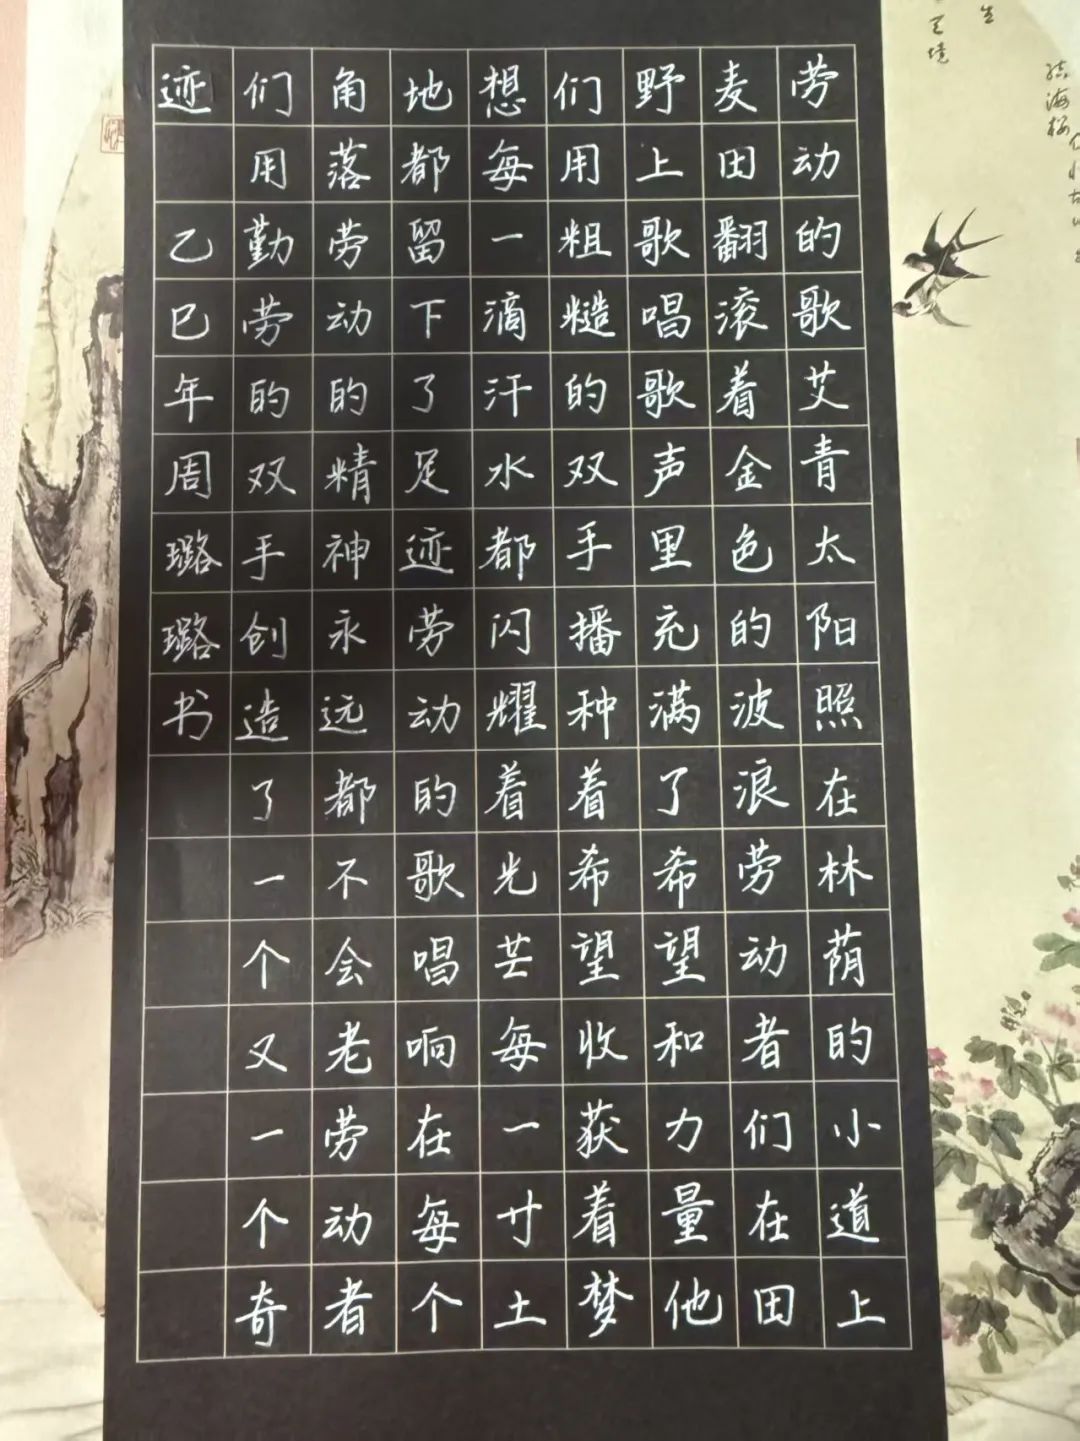 劳动的歌艾青太阳照在林荫的小道上
麦田翻滚着金色的波浪劳动者们在田
野上歌唱歌声里充满了希望和力量他
们用粗糙的双手播种着希望收获着梦
想每一滴汗水都闪耀着光芒每一寸土
地都留下了足迹劳动的歌唱响在每个
角落劳动的精神永远都不会老劳动者
们用勤劳的双手创造了一个又一个奇
迹
乙巳年周璐璐书